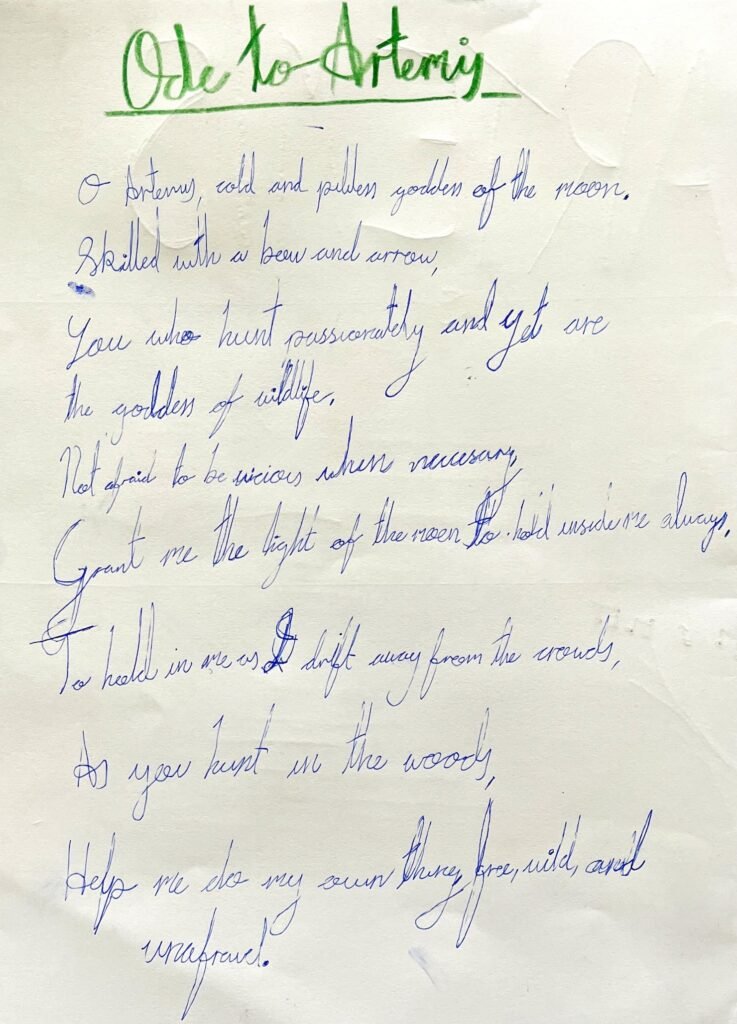 Ode to Artemis
O Artemis, cold and pitiless goddess of the moon.
Skilled with a bow and arrow,
You who hunt passionately and yet are
the goddess of wildlife.
Not afraid to be vicious when necessary,
Grant me the light of the moon to hold inside me always,
To hold in me as I drift away from the crowds,
As you hunt in the woods,
Help me do my own thing, free, wild, and
unafraid.